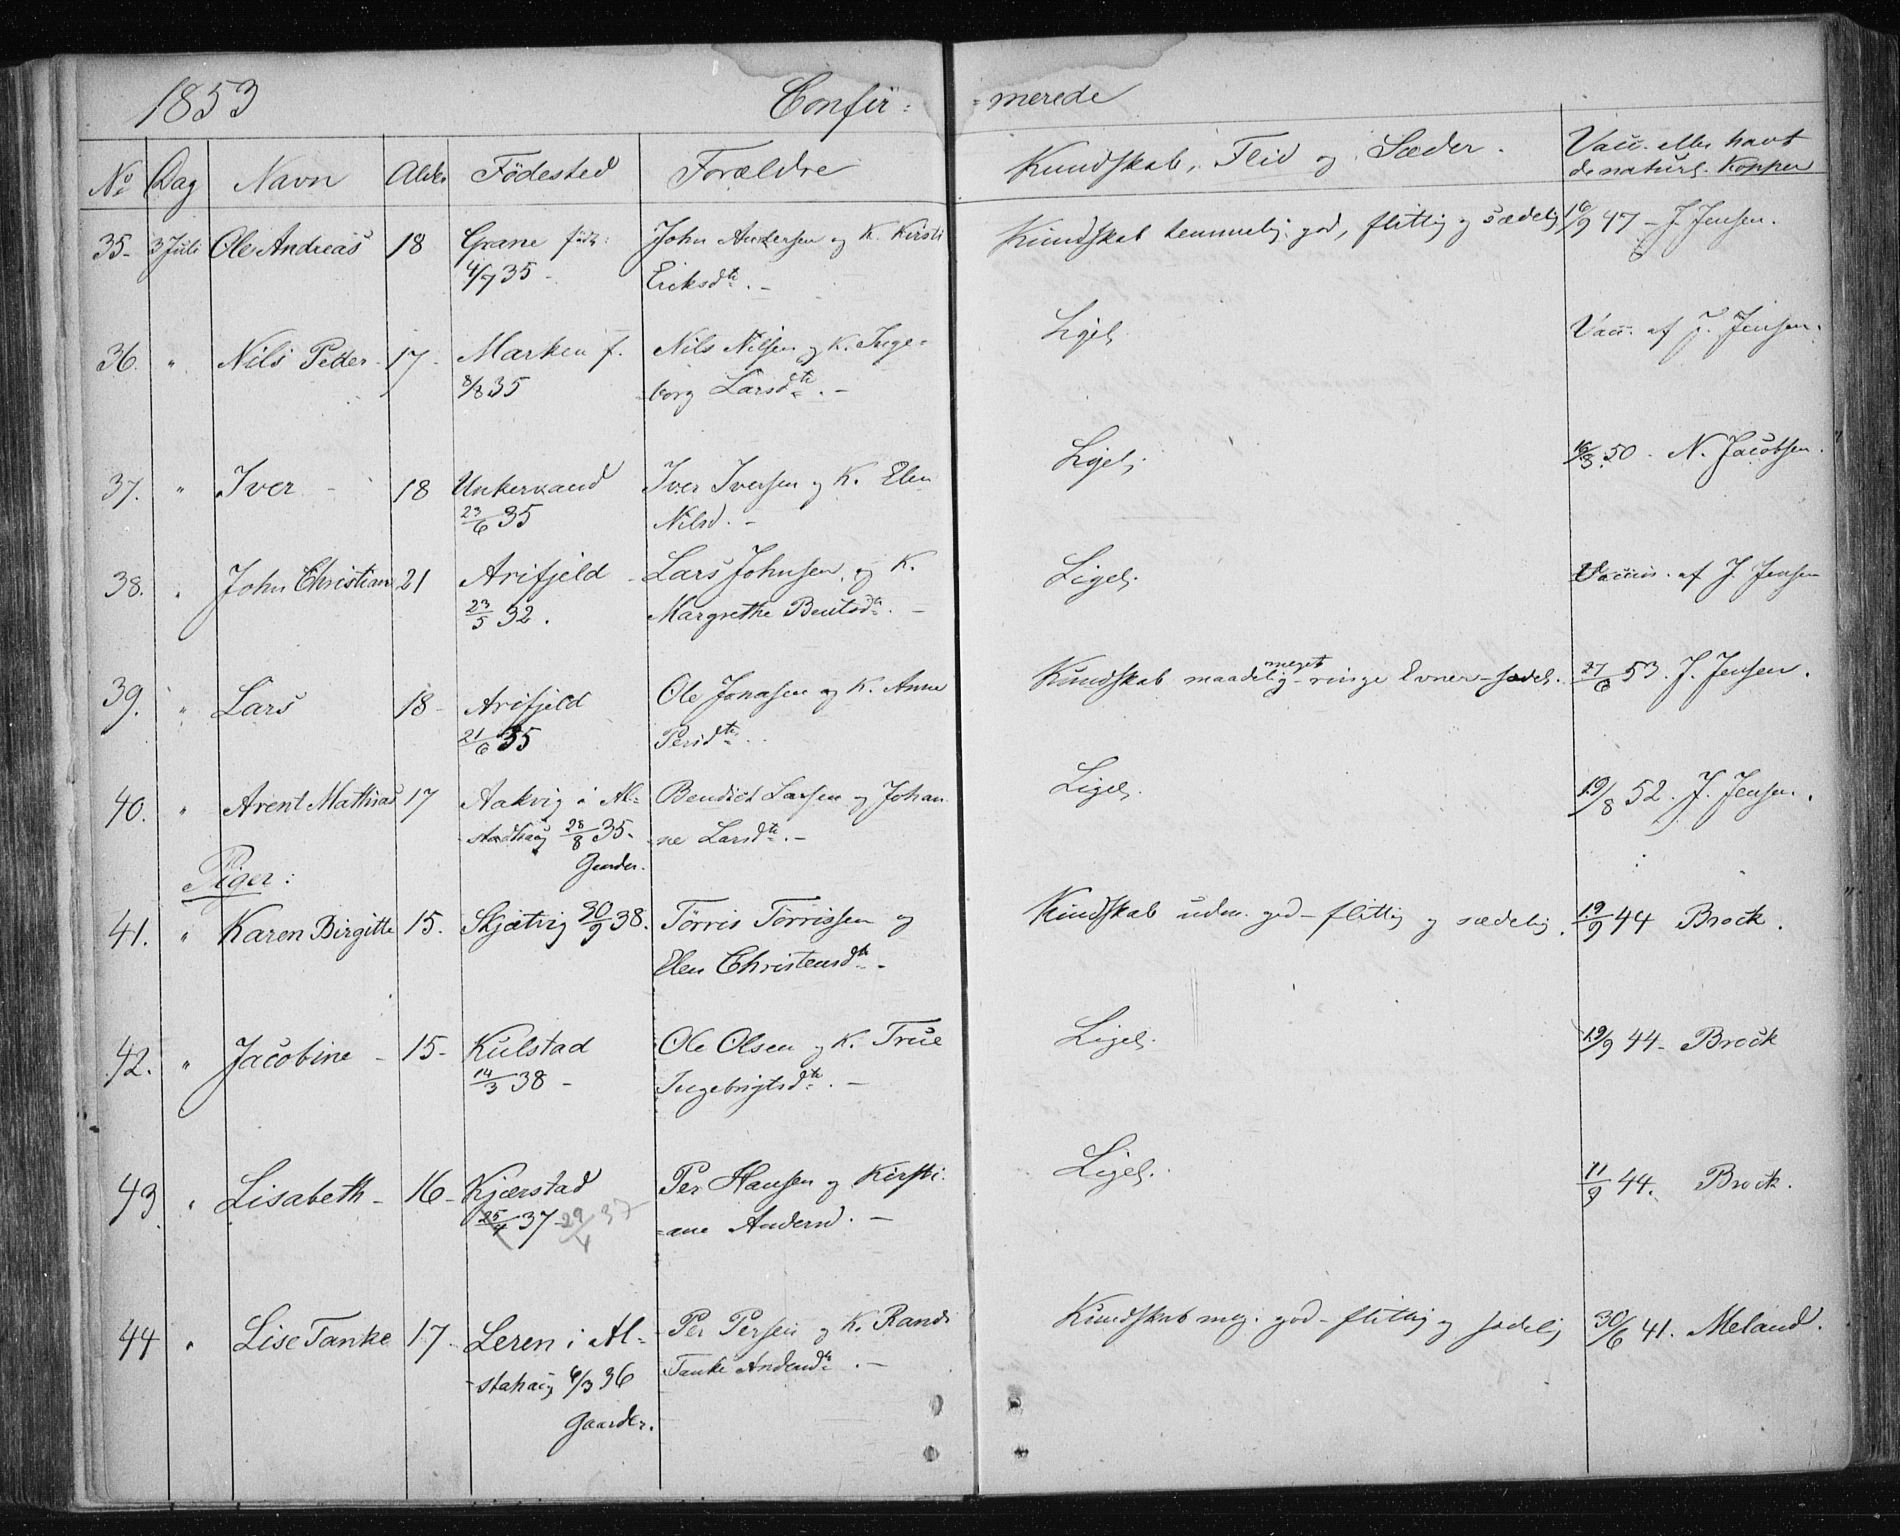 1853 Confir= =merede
No Dag Navn Alder Fødested Forældre Kundskab, Flid og Sæder. Vacc. eller havt
de naturl. Kopper
35. 3 Juli Ole Andreas 18 Grane Kundskab temmelig god, flittig og sædelig 16/9 47 - J. Jensen.
John Andersen og K. Kirsti
4/7 35 - Eriksdtr. -
36. " Nils Peder 17 - Marken f. Nils Nilsen og K. Inge= Ligel. Vacc. af J. Jensen.
8/8 35 =borg Larsdtr. -
37. " Iver - 18 Unkervand Iver Iversen og K. Elen Ligel. 16/3 50 - N. Jacobsen.
23/6 35 Nilsd. -
38. " John Christian 21 Arifjeld Lars Johnsen og K. Ligel. Vaccin. af J. Jensen
23/5 32. Margrethe Bentsdtr. -
39. " Lars 18 - Arifjeld Ole Jonasen og K. Anne Kundskab maadelig - meget ringe Evner - sædel. 27/6 53. J. Jensen.
21/6 35 Persdtr.
40. " Arent Mathias 17 Aakvig i Al= Bendict Larsen og Johan Ligel. 19/8 52. J. Jensen.
=stadhaug 28/8 35 - =ne Larsdtr. -
Gaarder.
Piger:
41. " Karen Birgitte 15. Skjætvig 30/9 38. Tørris Tørrissen og Kundskab udm. god - flittig og sædelig. 19/9 44 Brock.
Elen Christensdtr. -
42. " Jacobine - 15 - Kulstad Ole Olsen og K. True Ligel. 19/9 44 - Brock
14/3 38 - Ingebrigtsdtr. -
43. " Lisabeth - 16 - Kjærstad Per Hansen og Kirsti= Ligel. 11/9 44. Brock.
25/4 37 - 29/4 37 =ane Andersd. -
44 " Lise Tanke 17 - Leren i Al= Per Persen og K. Randi Kundskab meg. god - flittig og sædelig 30/6 41. Meland.
=stahaug 6/3 36 Tanke Andersdtr. -
Gaarder.